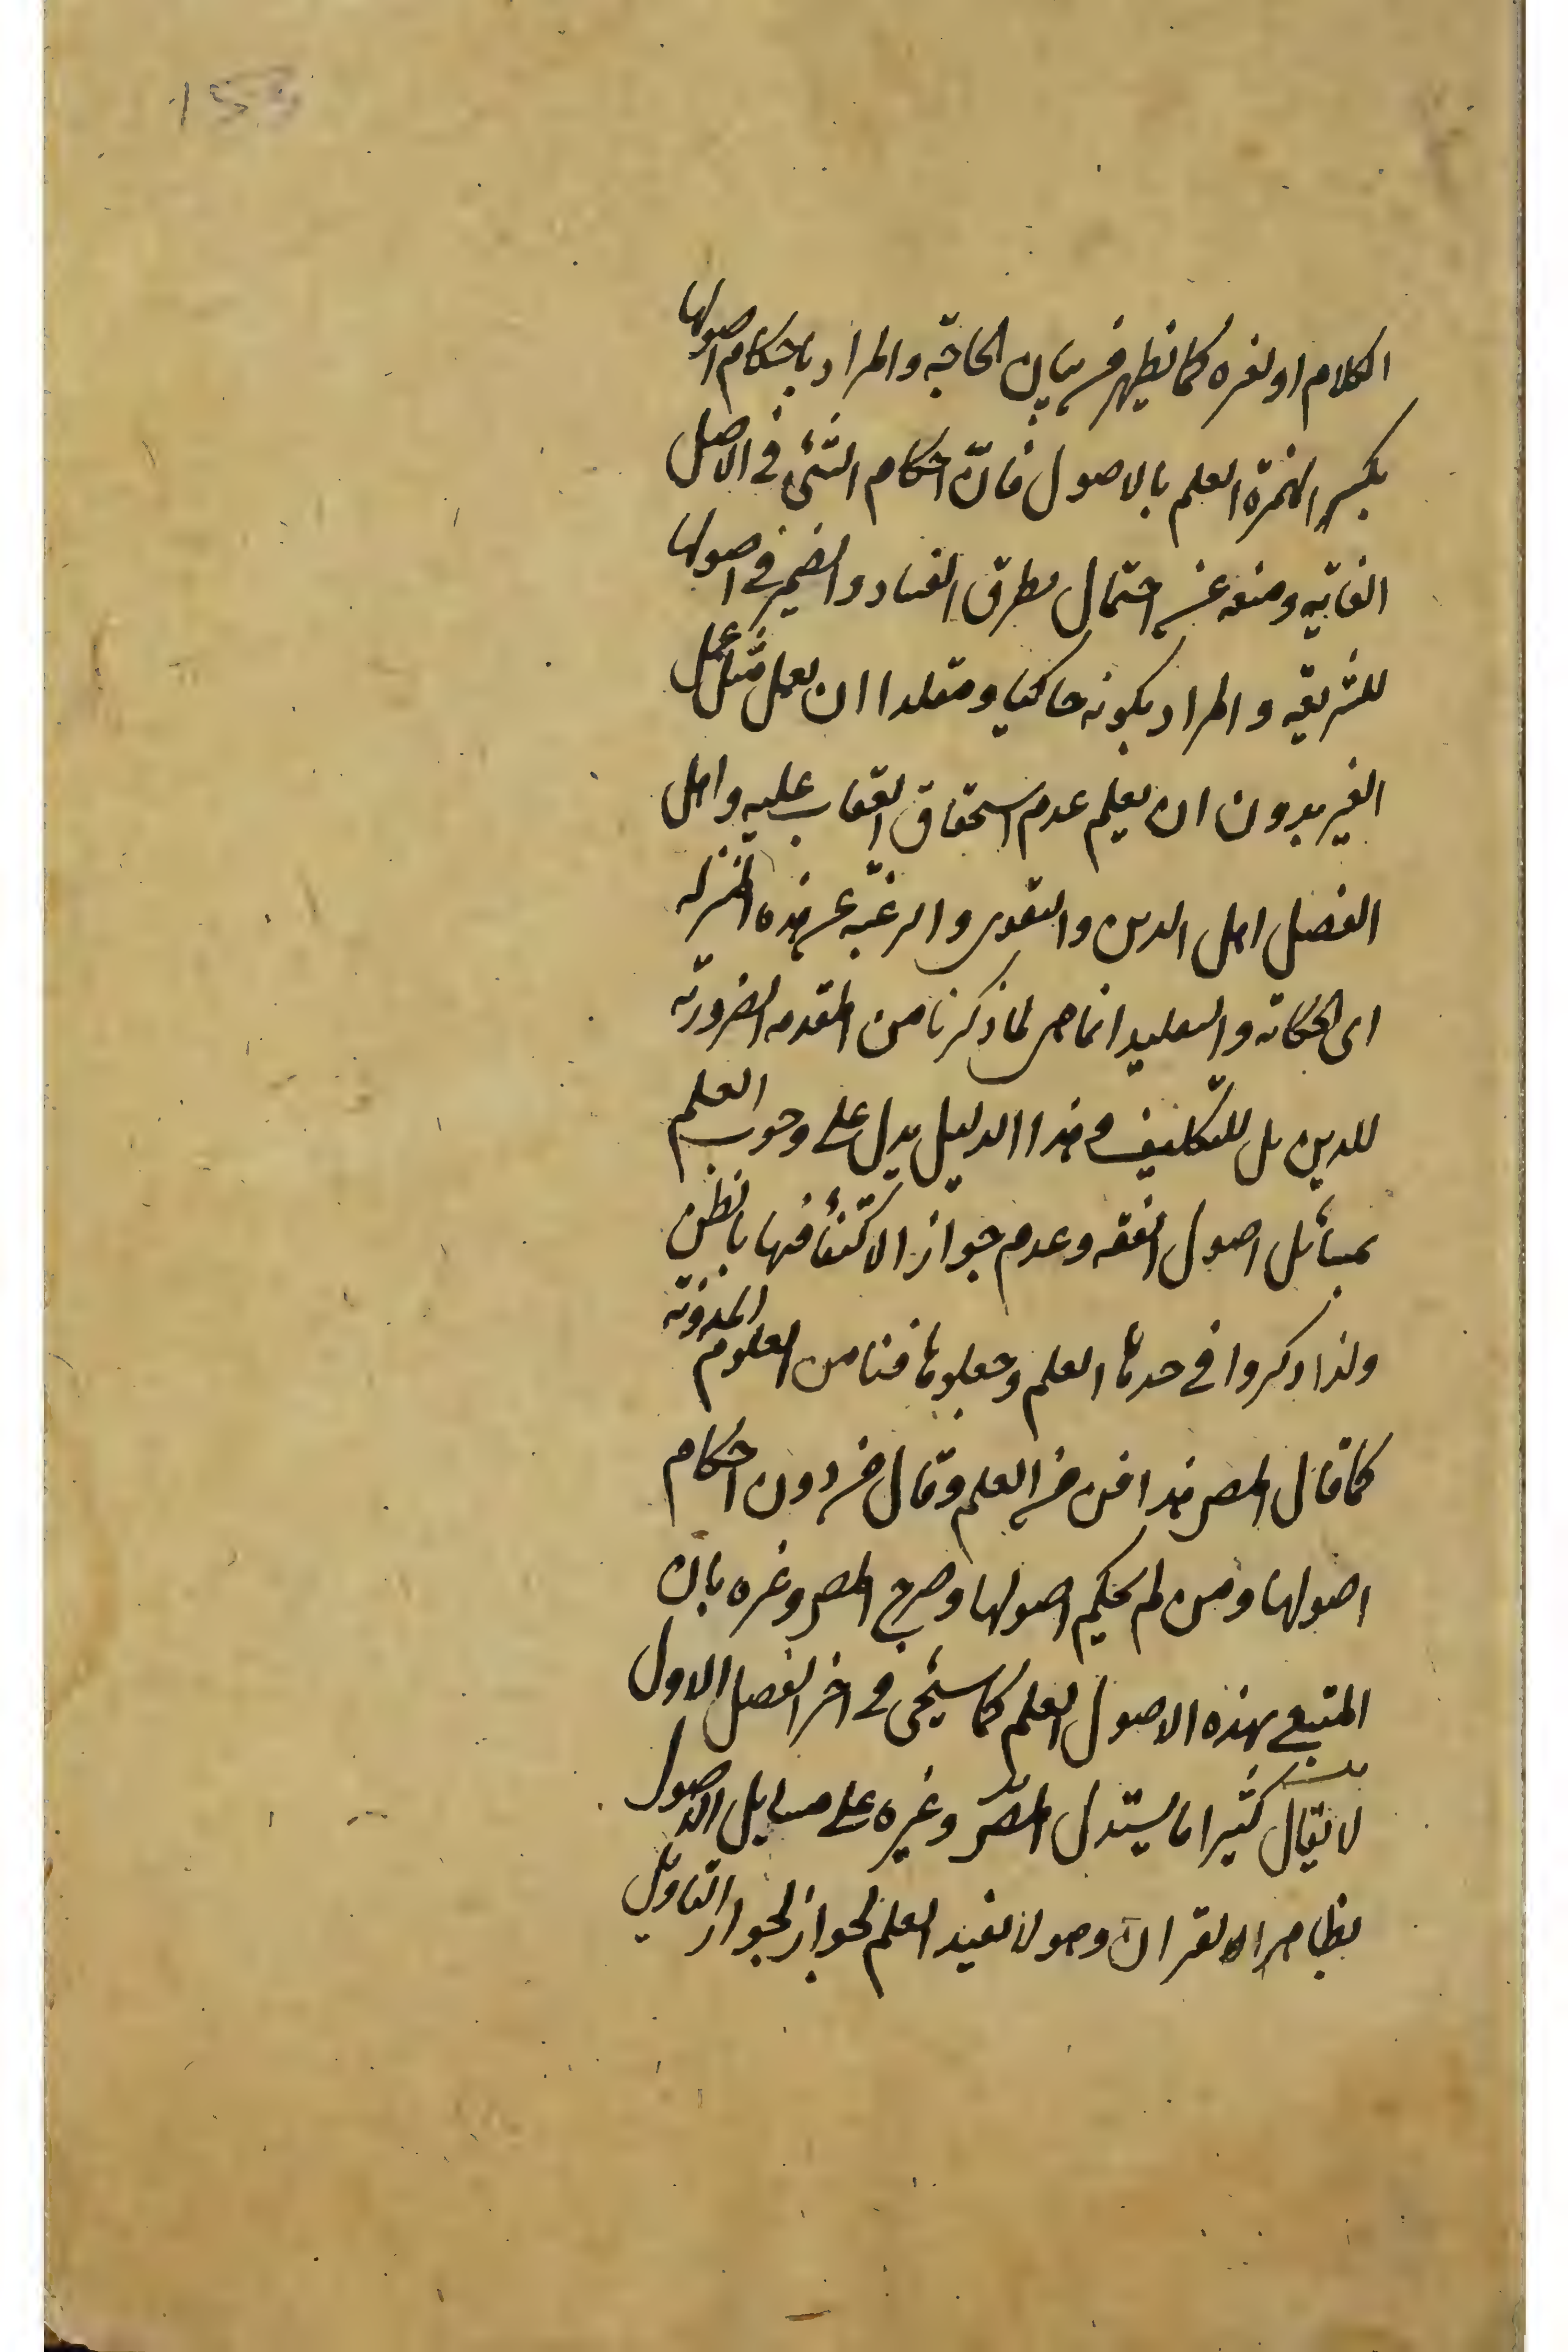 155
الكلام او لغيره كما يظهر في بيان الحاجة والمراد باحكام اصولها
بكسر الهمزة العلم بالاصول فان احكام الشئ في الاصل
اتقانه ومنعه عن احتمال تطرق الفساد والضمير في اصولها
للشريعة والمراد بكونه حاكيا ومقلدا ان يعمل مثل عمل
الغير بدون ان يعلم عدم استحقاق العقاب عليه واهل
الفضل اهل الدين والتقوى والرغبة عن هذه المنزلة
اى الحكاية والتقليد انما هى لما ذكرنا من المقدمة الضرورية
للدين بل للتكليف وهذا الدليل يدل على وجوب العلم
بمسائل اصول الفقه وعدم جواز الاكتفأ فيها بالظن
ولذا ذكروا في حدها العلم وجعلوها فنا من العلوم المدونة
كما قال المص هذا فن من العلم وقال من دون احكام
اصولها ومن لم يحكم اصولها وصرح المص وغيره بان
المتبع بهذه الاصول العلم كما سيجئ في اخر الفصل الاول
لا يقال كثيرا ما يستدل المص وغيره على مسايل الاصول
بظاهر القران وهو لا يفيد العلم لجواز لجواز التاويل